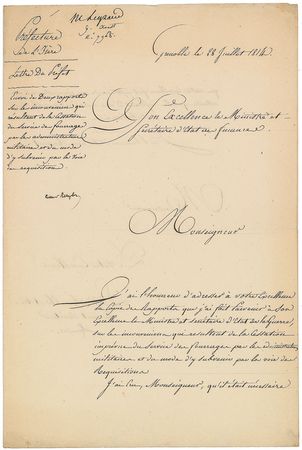 Préfecture
de l'Isère
Lettre Du Préfet
Grenoble le 28 Juillet 1814.
Envoi de Deux rapports
sur les inconvéniens qui
résultent de la Cessation
du Service de fourrage
par les administrations
militaires et du mode
d'y subvenir par la voie
de requisition
Son Excellence le Ministre et
Secrétaire d'Etat des finances.
Monseigneur
J'ai l'honneur d'adresser à votre Excellence
la Copie de Rapports que j'ai fait parvenir à Son
Excellence le Ministre et secrétaire d'Etat de la Guerre,
sur les inconvéniens qui resultent de la Cessation
du Service de fourrage par les administrations
militaires et du mode d'y subvenir par la voie de
Requisitions
J'ai cru, Monseigneur, qu'il était nécessaire